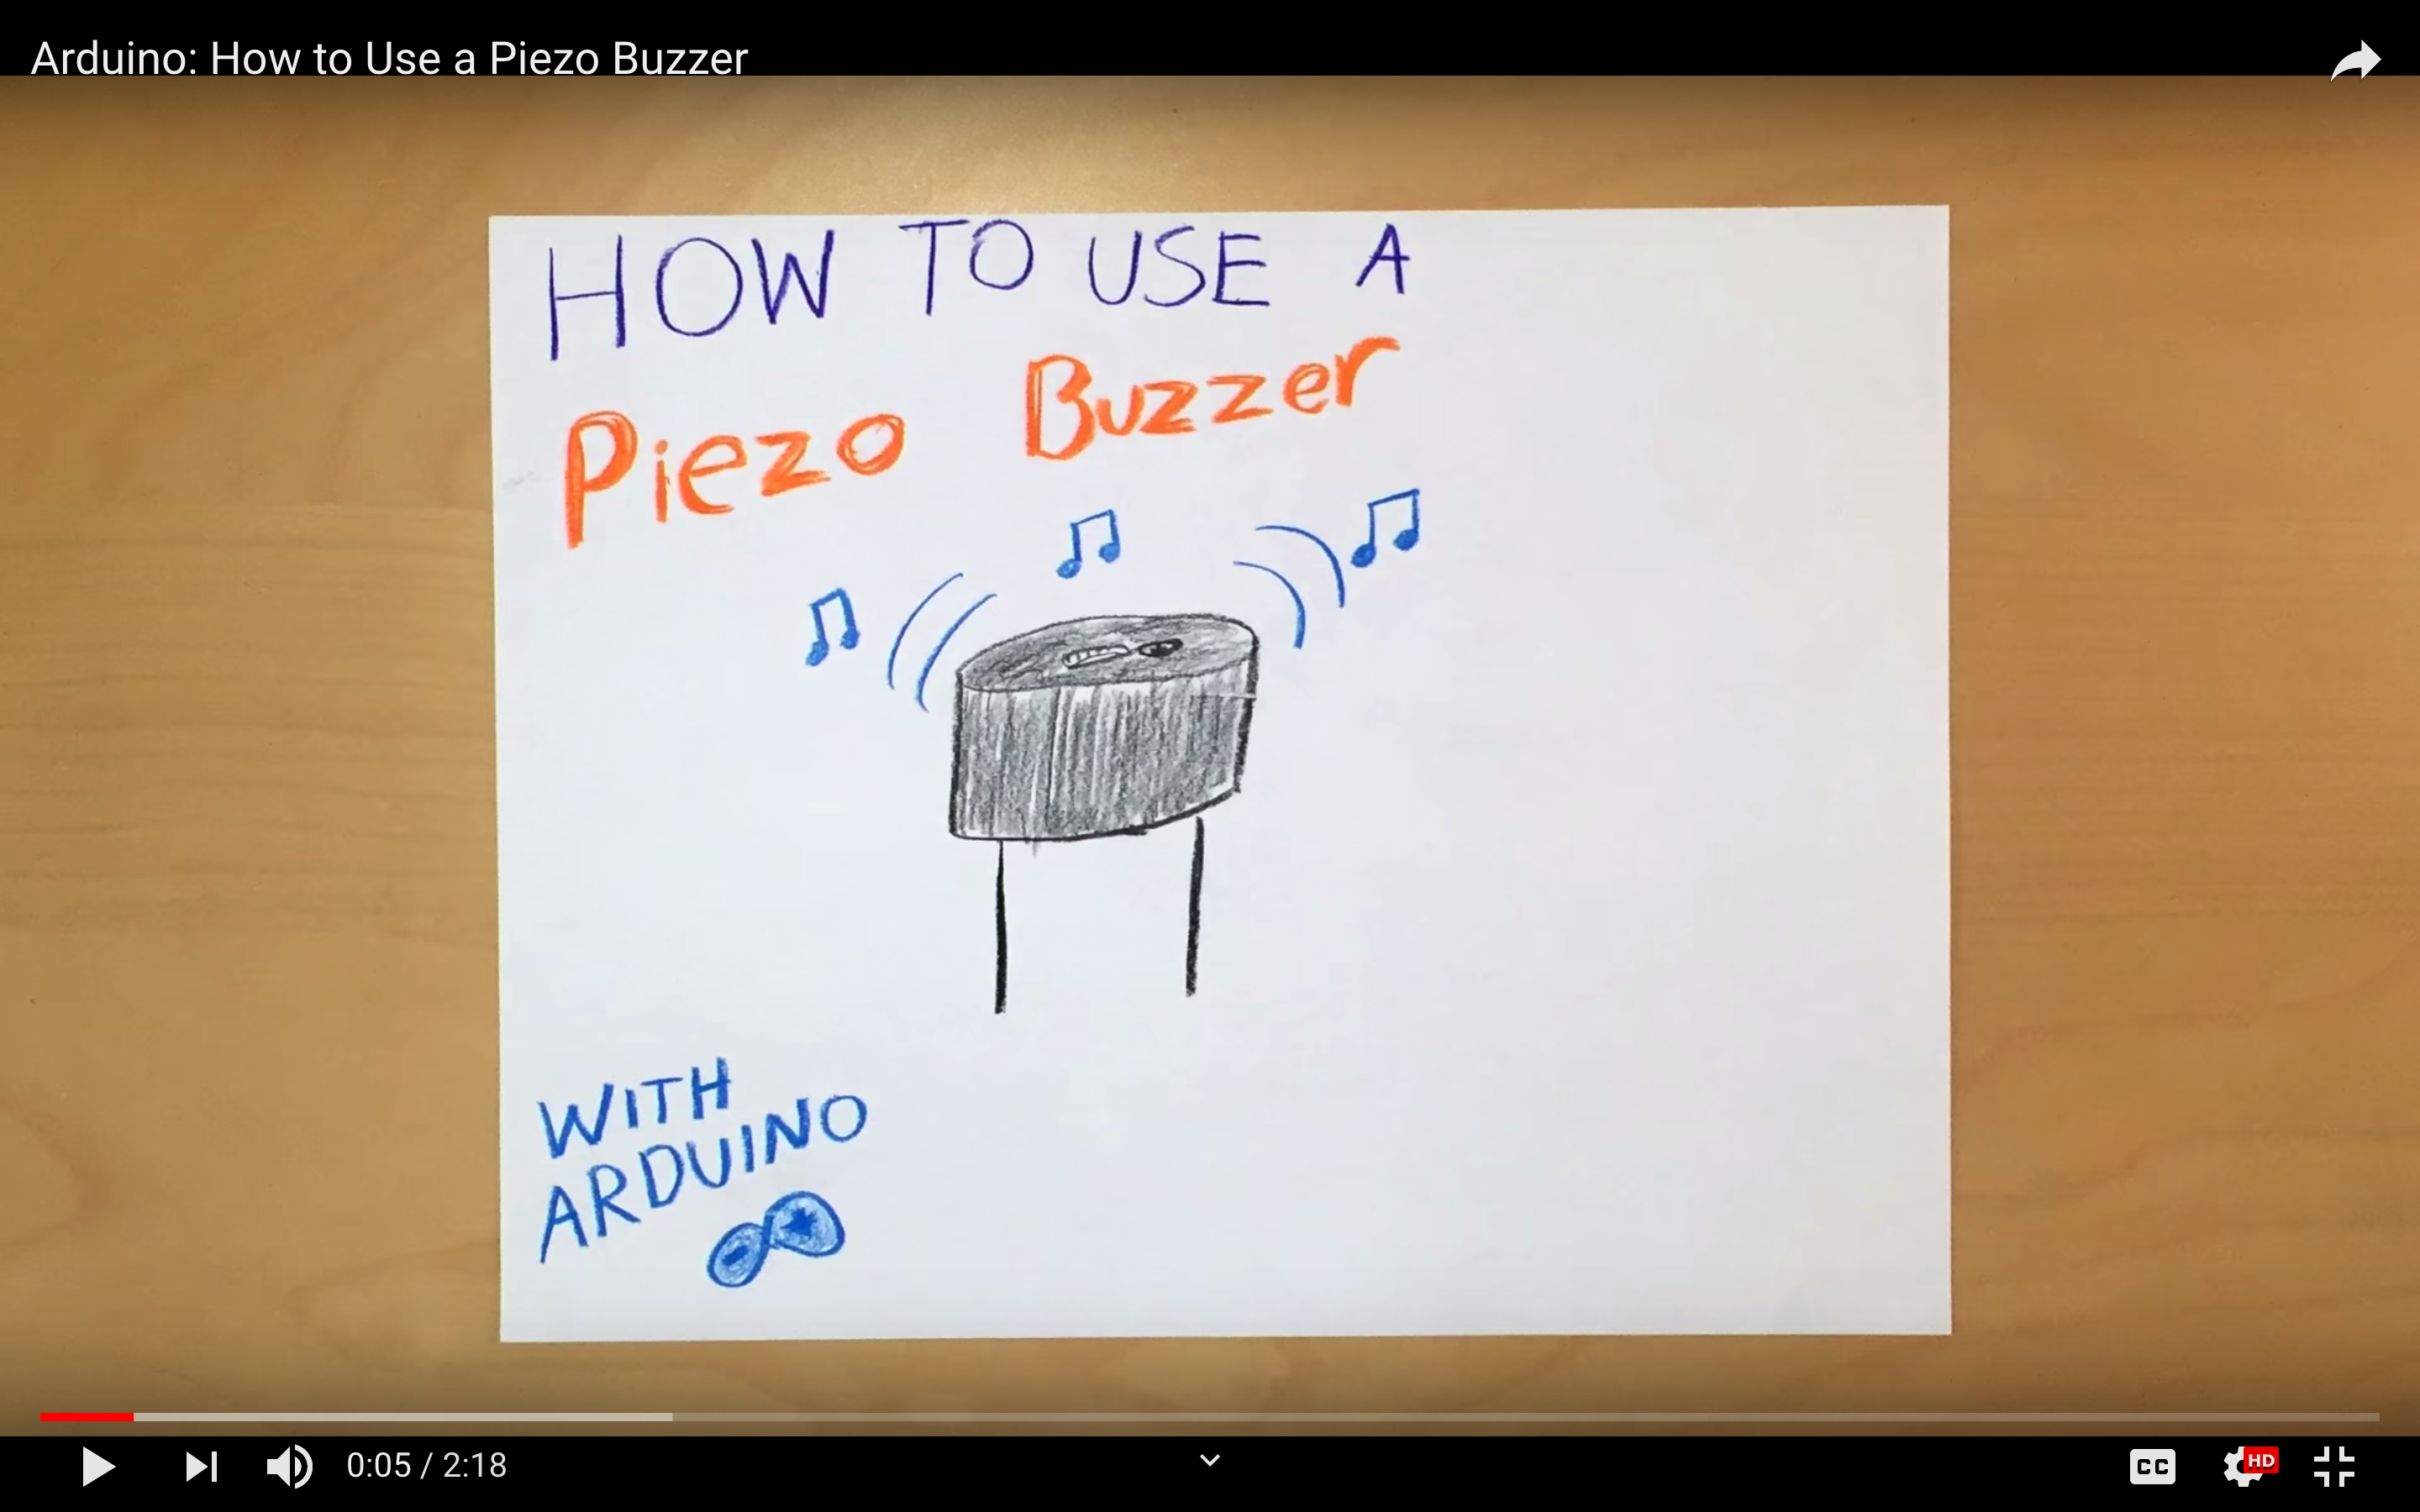 Arduino: How to Use a Piezo Buzzer
HOW TO USE A
Piezo Buzzer
WITH
ARDUINO
0:05 / 2:18
CC
HD